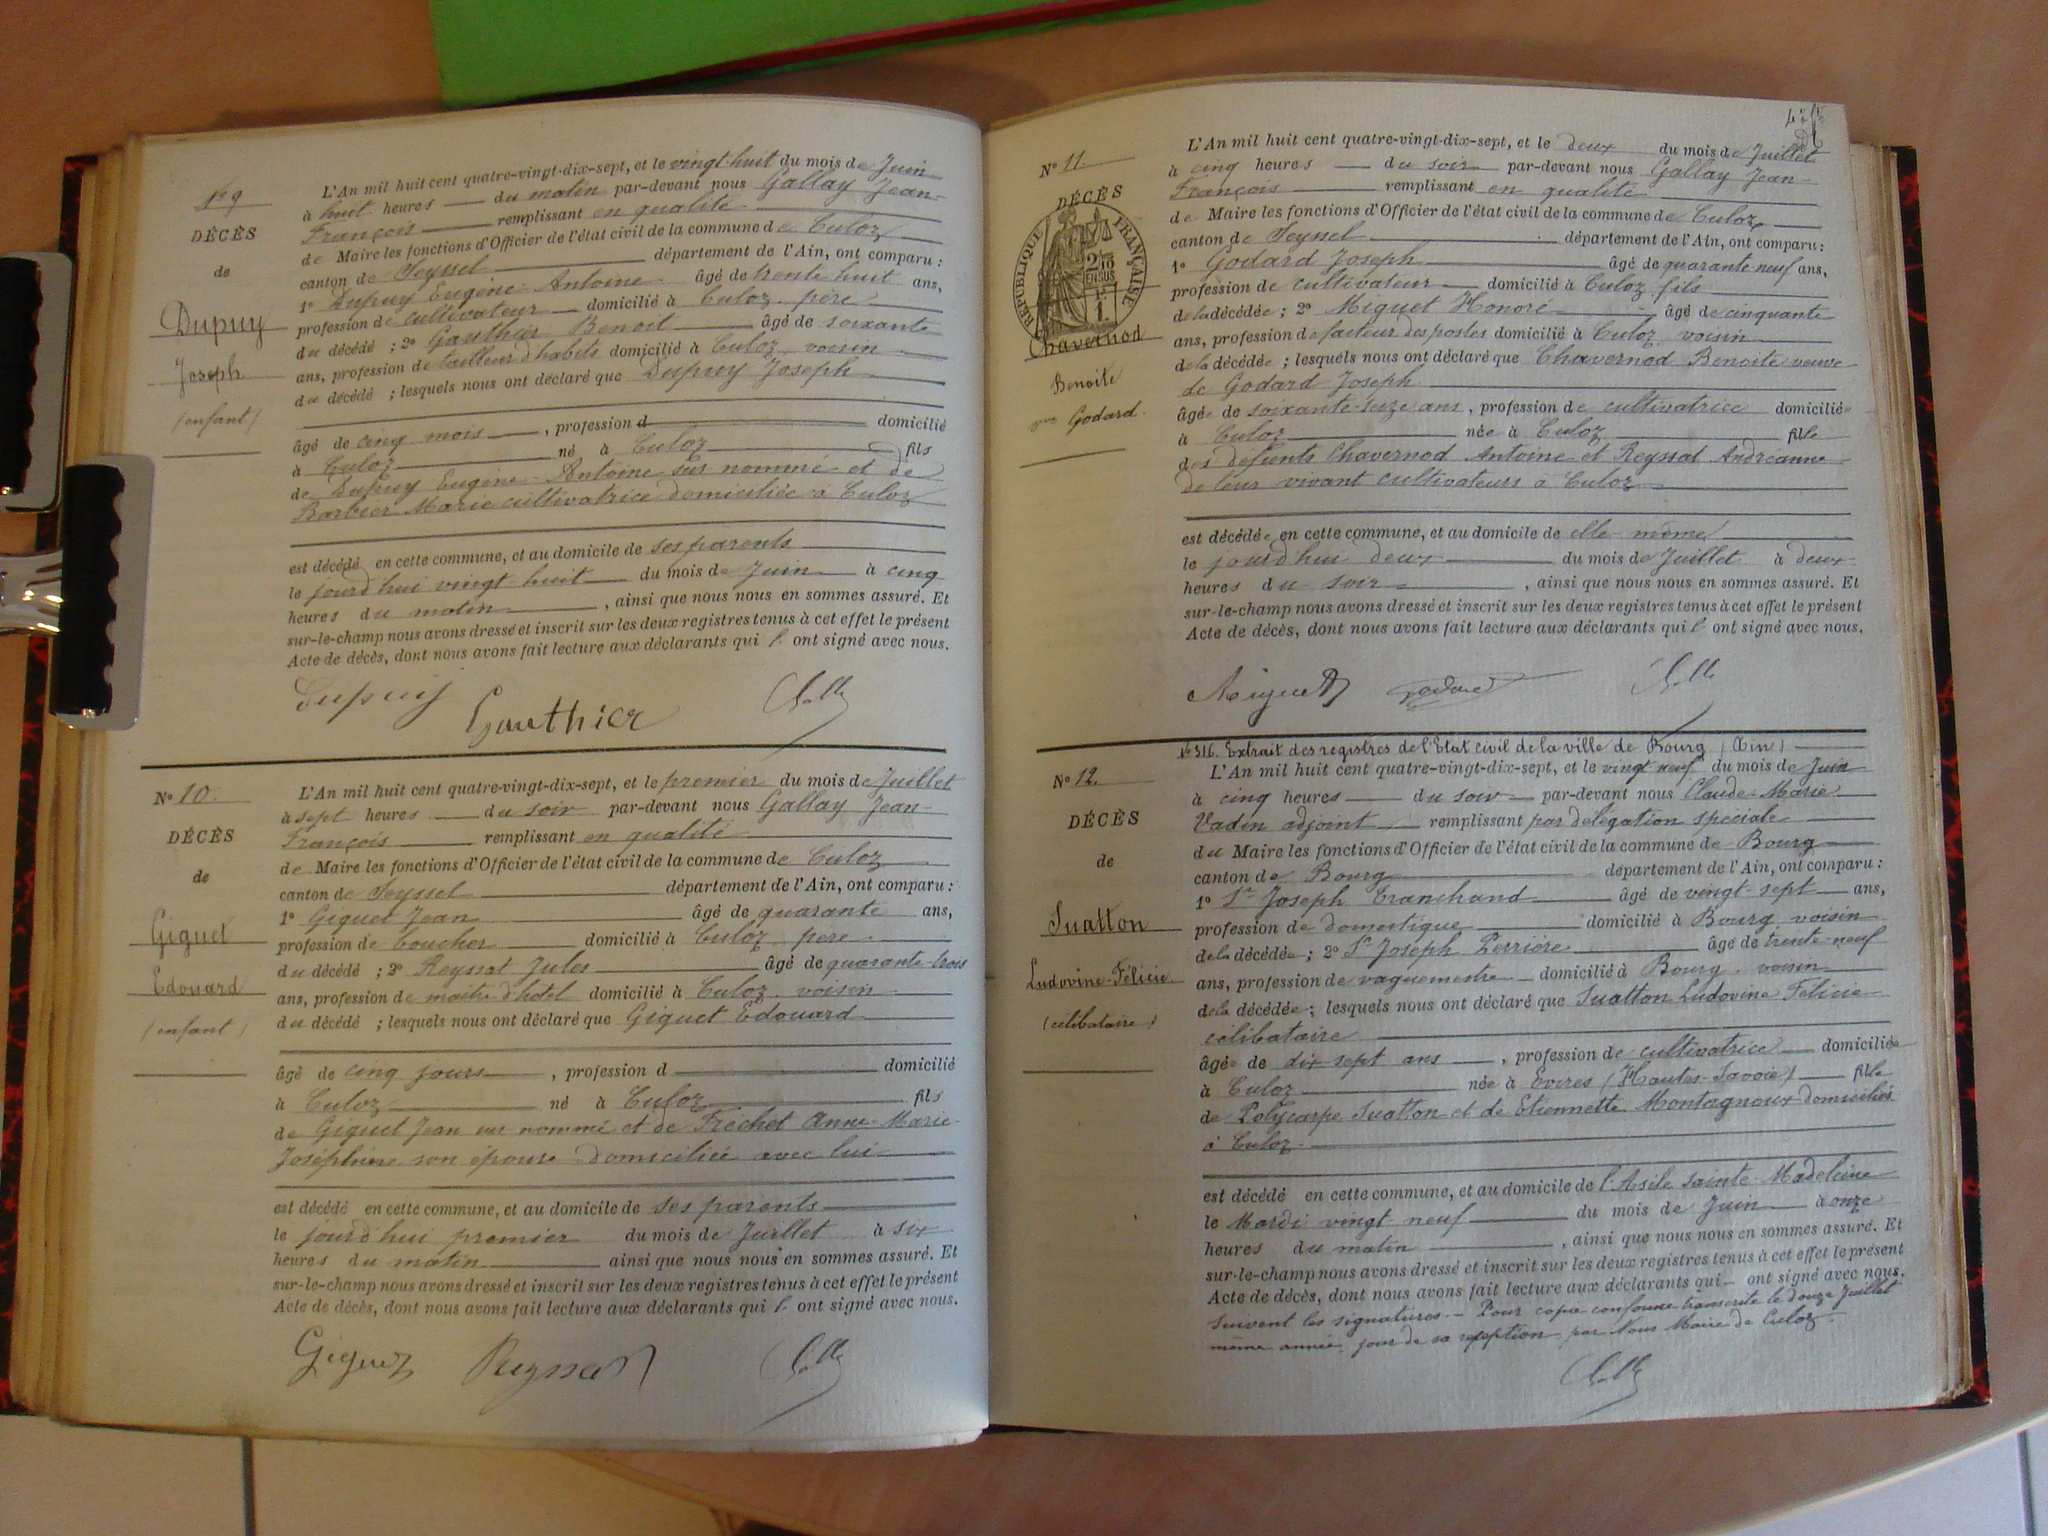 No 9
DÉCÈS
de
Dupuy
Joseph
(enfant)
L'An mil huit cent quatre-vingt-dix-sept, et le vingt-huit du mois de Juin
à huit heures du matin par-devant nous Gallay Jean-
François remplissant en qualité
de Maire les fonctions d'Officier de l'état civil de la commune de Culoz
canton de Seyssel département de l'Ain, ont comparu :
1o Dupuy Eugène-Antoine âgé de trente huit ans,
profession de cultivateur domicilié à Culoz père
du décédé ; 2o Gauthier Benoit âgé de soixante
ans, profession de tailleur d'habits domicilié à Culoz voisin
du décédé ; lesquels nous ont déclaré que Dupuy Joseph
âgé de cinq mois, profession d domicilié
à Culoz né à Culoz fils
de Dupuy Eugène-Antoine sus nommé et de
Barbier Marie cultivatrice domiciliée à Culoz
est décédé en cette commune, et au domicile de ses parents
le jourd'hui vingt huit du mois de Juin à cinq
heures du matin, ainsi que nous nous en sommes assuré. Et
sur-le-champ nous avons dressé et inscrit sur les deux registres tenus à cet effet le présent
Acte de décès, dont nous avons fait lecture aux déclarants qui l' ont signé avec nous.
Dupuy Gauthier
No 10.
DÉCÈS
de
Giguet
Edouard
(enfant)
L'An mil huit cent quatre-vingt-dix-sept, et le premier du mois de Juillet
à sept heures du soir par-devant nous Gallay Jean-
François remplissant en qualité
de Maire les fonctions d'Officier de l'état civil de la commune de Culoz
canton de Seyssel département de l'Ain, ont comparu :
1o Giguet Jean âgé de quarante ans,
profession de boucher domicilié à Culoz père
du décédé ; 2o Reyssat Jules âgé de quarante-trois
ans, profession de maitre d'hôtel domicilié à Culoz voisin
du décédé ; lesquels nous ont déclaré que Giguet Edouard
âgé de cinq jours, profession d domicilié
à Culoz né à Culoz fils
de Giguet Jean sus nommé et de Fréchet Anne-Marie-
Joséphine son épouse domiciliée avec lui
est décédé en cette commune, et au domicile de ses parents
le jourd'hui premier du mois de Juillet à six
heures du matin ainsi que nous nous en sommes assuré. Et
sur-le-champ nous avons dressé et inscrit sur les deux registres tenus à cet effet le présent
Acte de décès, dont nous avons fait lecture aux déclarants qui l' ont signé avec nous.
Giguet Reyssat
No 11.
DÉCÈS
RÉPUBLIQUE FRANÇAISE
2/10 EN SUS
Chavernod
Benoite
vve Godard.
L'An mil huit cent quatre-vingt-dix-sept, et le deux du mois de Juillet
à cinq heures du soir par-devant nous Gallay Jean-
François remplissant en qualité
de Maire les fonctions d'Officier de l'état civil de la commune de Culoz
canton de Seyssel département de l'Ain, ont comparu :
1o Godard Joseph âgé de quarante-neuf ans,
profession de cultivateur domicilié à Culoz fils
de la décédée ; 2o Miguet Honoré âgé de cinquante
ans, profession de facteur des postes domicilié à Culoz voisin
de la décédée ; lesquels nous ont déclaré que Chavernod Benoite veuve
de Godard Joseph
âgée de soixante-seize ans, profession de cultivatrice domiciliée
à Culoz née à Culoz fille
des défunts Chavernod Antoine et Reyssat Andréanne
de leur vivant cultivateurs à Culoz
est décédée en cette commune, et au domicile de elle-même
le jourd'hui deux du mois de Juillet à deux
heures du soir, ainsi que nous nous en sommes assuré. Et
sur-le-champ nous avons dressé et inscrit sur les deux registres tenus à cet effet le présent
Acte de décès, dont nous avons fait lecture aux déclarants qui l' ont signé avec nous.
Miguet Godard
No 12.
DÉCÈS
de
Suatton
Ludovine-Félicie
(célibataire)
No 316. Extrait des registres de l'Etat civil de la ville de Bourg (Ain)
L'An mil huit cent quatre-vingt-dix-sept, et le vingt neuf du mois de Juin
à cinq heures du soir par-devant nous Claude-Marie
Vadin adjoint remplissant par délégation spéciale
du Maire les fonctions d'Officier de l'état civil de la commune de Bourg
canton de Bourg département de l'Ain, ont comparu :
1o Sr Joseph Tranchand âgé de vingt-sept ans,
profession de domestique domicilié à Bourg voisin
de la décédée ; 2o Sr Joseph Perrière âgé de trente-neuf
ans, profession de vaguemestre domicilié à Bourg voisin
de la décédée ; lesquels nous ont déclaré que Suatton Ludovine Félicie
célibataire
âgée de dix sept ans, profession de cultivatrice domiciliée
à Culoz née à Evires (Haute-Savoie) fille
de Polycarpe Suatton et de Etiennette Montagnoux domiciliés
à Culoz
est décédé en cette commune, et au domicile de l'Asile sainte-Madeleine
le Mardi vingt-neuf du mois de Juin à onze
heures du matin, ainsi que nous nous en sommes assuré. Et
sur-le-champ nous avons dressé et inscrit sur les deux registres tenus à cet effet le présent
Acte de décès, dont nous avons fait lecture aux déclarants qui ont signé avec nous.
Suivent les signatures. Pour copie conforme transcrite le douze Juillet
même année, jour de sa réception par Nous Maire de Culoz.